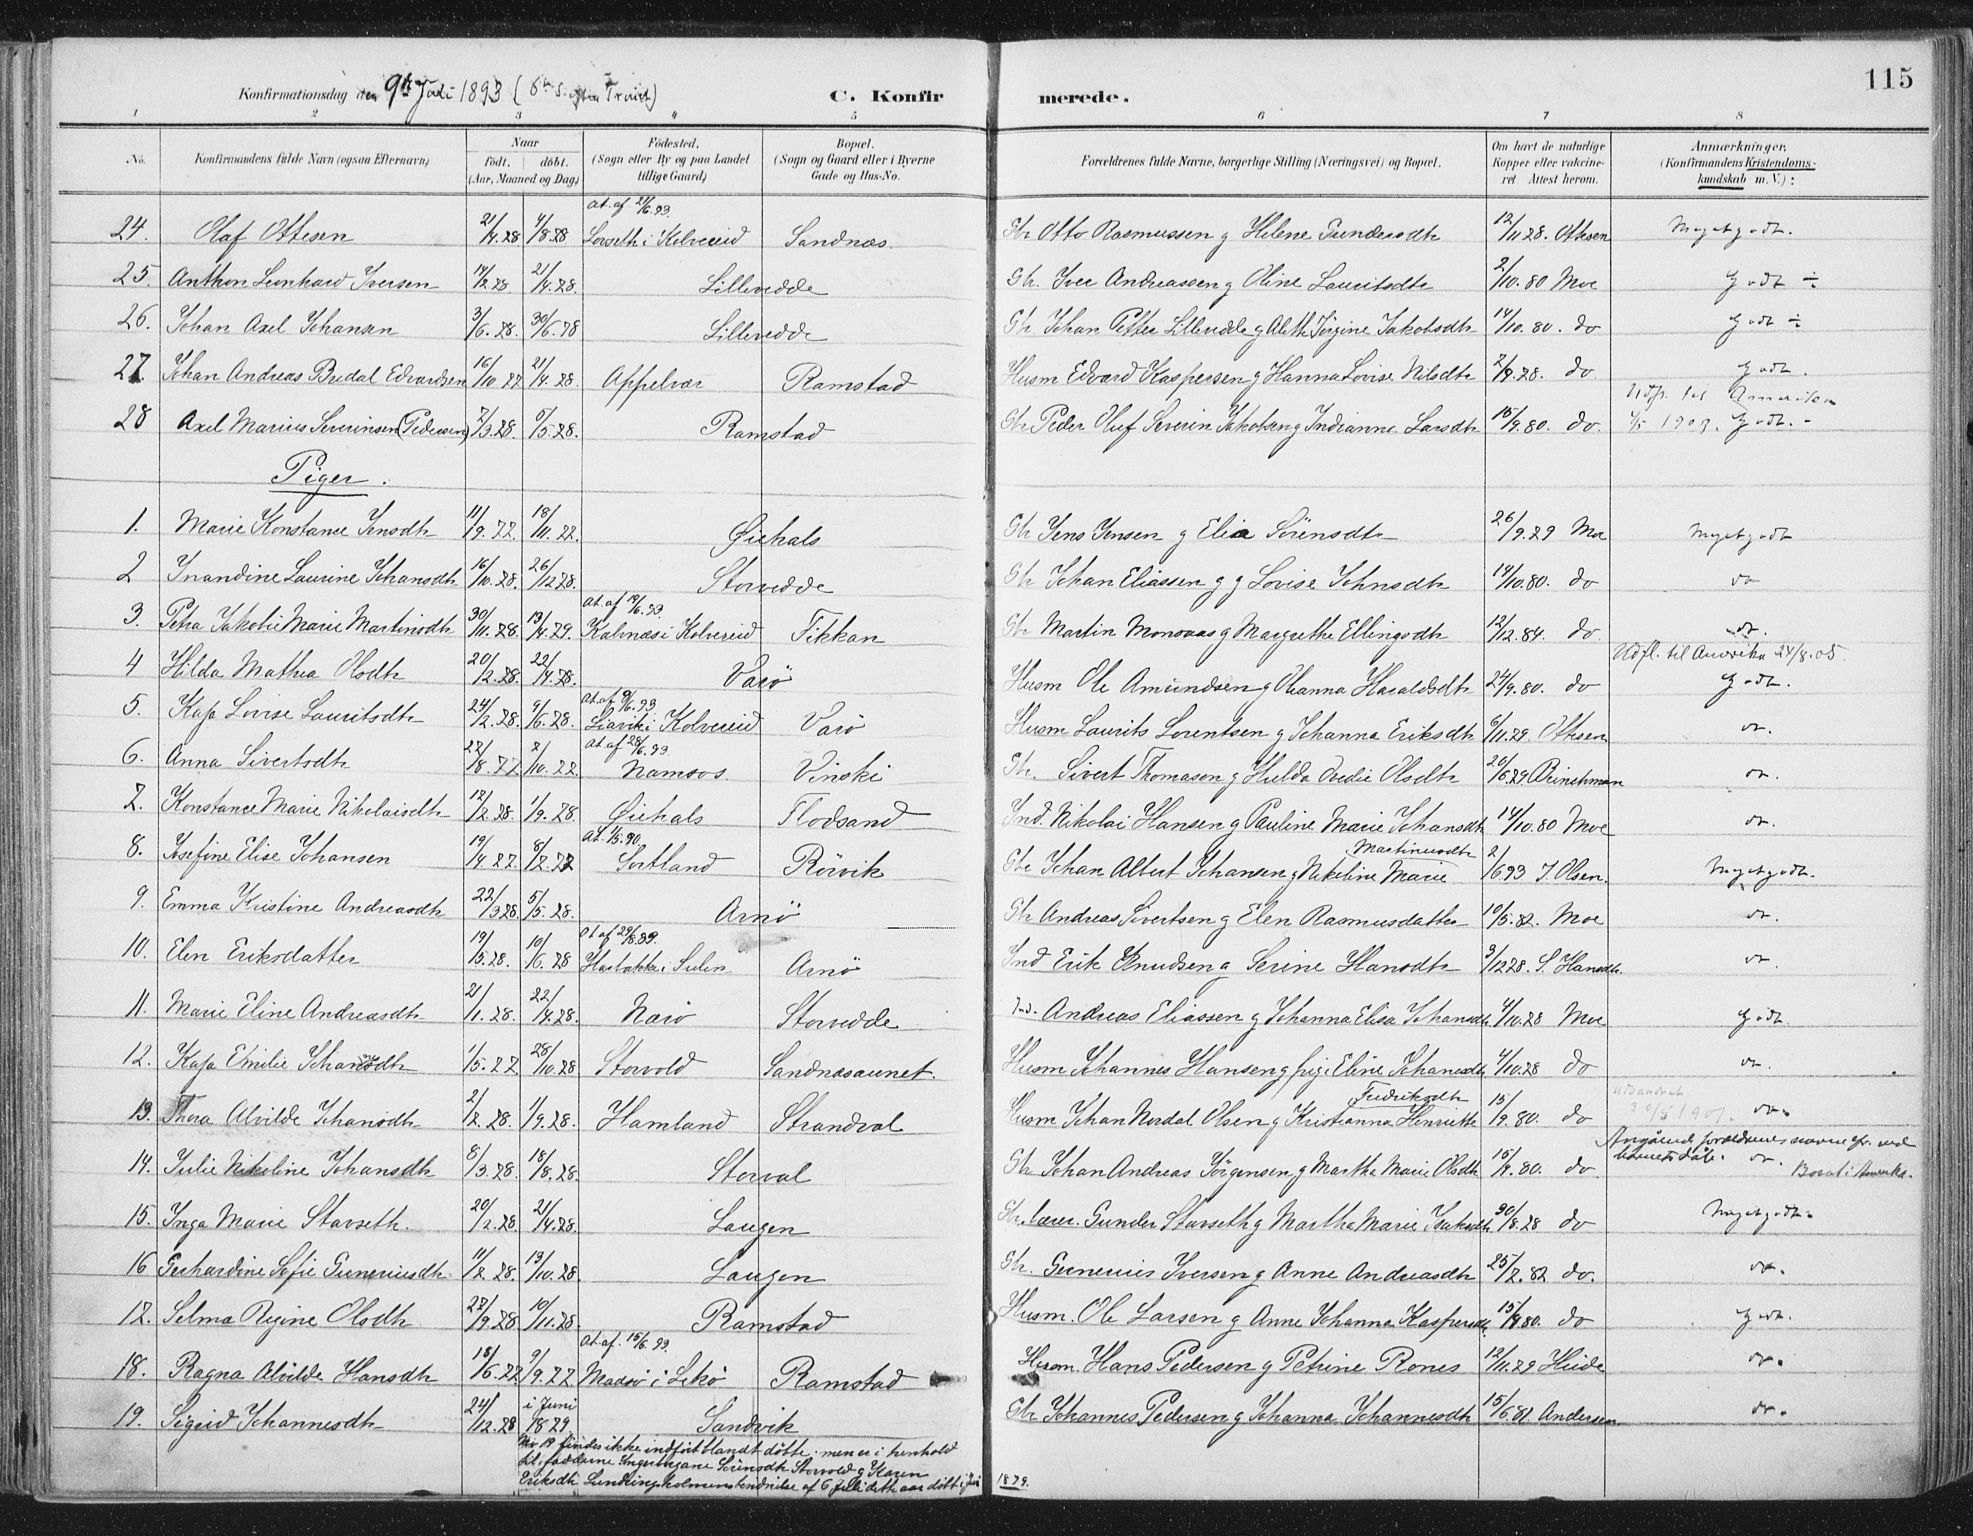 115
Konfirmationsdag den 9de Juli 1893 (6te S. efter Trinit)
C. Konfir merede.
1 2 3 4 5 6 7 8
No. Konfirmandens fulde Navn (ogsaa Efternavn) Naar födt. döbt. (Aar, Maaned og Dag) Födested. (Sogn eller By og paa Landet tillige Gaard) Bopæl. (Sogn og Gaard eller i Byerne Gade og Hus-No. Forældrenes fulde Navne, borgerlige Stilling (Næringsvei) og Bopæl. Om havt de naturlige Kopper eller vaccineret Attest herom. Anmærkninger. (Konfirmandens Kristendomskundskab m. V.):
At. af 21/6.93.
24. Olaf Ottesen 21/4.78 4/8.78 Lorseth i Kolvereid Sandnæs. Gbr Otto Rasmussen g Helene Gundersdtr 12/11 78. Ottesen Meget godt.
25. Anthon Leonhard Iversen 14/2 78 21/4.78. Lillevedde Gbr. Iver Andreassen g Oline Lauritsdtr 2/10.80 Moe Godt ÷
26. Johan Axel Johansen 3/6.78. 30/6.78 Lillevedde Gbr. Johan Petter Lillevedde g Aleth Jörgine Jakobsdtr 14/10.80. do Godt ÷
27. Johan Andreas Bredal Edvardsen 16/10.77 21/4.78. Appelvær Ramstad Husm Edvard Kaspersen g Hanna Lovise Nilsdtr 2/9.78. do Godt.
Udfl. til Amerika
28 Axel Marius Severinsen (Pedersen) 7/3.78. 5/5.78. Ramstad Gbr Peder Oluf Severin Jakobsen g Indianna Larsdtr 15/9.80. do. 1/5 1903. Godt. -
Piger.
1. Marie Konstance Jensdtr 11/9.77. 18/11.77. Øiehals Gbr Jens Jensen g Elia Sörensdtr 26/9.79 Moe Meget godt
2 Inandine Laurine Johansdtr 16/10.78. 26/12 78. Storvedde Gbr Johan Eliassen g g Lovise Johnsdtr 14/10.80. do do
At. af 19/6.93
3. Petra Jakobie Marie Martinsdtr 30/11.78. 13/4.79. Kalvnæs i Kolvereid Fikkan Gbr Martin Monsaas g Margrethe Ellingsdtr 12/12.84. do do.
Udfl. til Amerika 24/8.05.
4 Hilda Mathea Olsdtr 20/2.78. 22/4.78. Varö Husm Ole Amundsen g Johanna Haraldsdtr 24/9.80. do Godt.
At. af 9/6.93
5. Kaja Lovise Lauritsdtr 24/2.78. 9/6.78. Liavik i Kolvereid Varö Husm Laurits Lorentsen g Johanna Eriksdtr 6/11.79. Ottesen do.
At. af 28/6.93
6. Anna Sivertsdtr 22/8.77 2/10.77 Namsos. Vinski Gbr. Sivert Thomasen g Hulda Ovedie Olsdtr 20/6.79 Brinchmann do.
7. Konstance Marie Nikolaisdtr 12/2.78. 1/9.78. Øiehals Flodsand Ind. Nikolai Hansen g Pauline Marie Johansdtr 14/10.80 Moe do.
At. 1/5.90. Martinusdtr
8. Josefine Elise Johansen 19/4.77. 8/7.77 Sortland Rörvik Gbr Johan Albert Johansen g Nikoline Marie 2/6 93 J. Olsen. Meget godt.
9. Emma Kristine Andreasdtr 22/3 78. 5/5.78. Arnö Gbr Andreas Sivertsen g Elen Rasmusdatter 10/5.82. Moe do.
10. Elen Eriksdatter 19/5.78. 10/6.78 i Sulen Arnö Ind Erik Knudsen g Serine Hansdtr 3/12 78. S. do.
11. Marie Eline Andreasdtr 21/1.78. 22/4.78. Narö Storvedde Ind. Andreas Eliassen g Johanna Elisa Johansdtr 4/10.78 Moe Godt.
12. Kaja Emilie Johannesdtr 1/5.77 28/10.78 Storvold Sandnæsaunet. Husm Johannes Hansen g pige Eline Johansdtr 4/10.78 do do.
Fredriksdtr Udvandret
13. Thora Alvilde Johansdtr 2/2.78. 1/9.78. Hamland Strandval Husm Johan Nordal Olsen g Kristianna Henriette 15/9.80. do 30/5 1907. do.
Angaaende forældrenes navne cfr. ved barnets daab.
14. Julie Nikoline Johansdtr 8/3.78. 18/8.78. Storval Gbr Johan Andreas Jörgensen g Marthe Marie Olsdtr 15/9.80. do do. Bosat i Amerika.
15. Inga Marie Stavseth. 20/2.78. 21/4.78. Laugen Gbr. lærer. Gunder Stavseth g Martha Marie Isaksdtr 30/8.78 do Meget godt.
16 Gerhardine Sofie Guneriusdtr. 11/2.78. 13/10.78. Laugen Gbr. Gunerius Iversen g Anne Andreasdtr 25/7.82 do. do.
17. Selma Regine Olsdtr 27/9.78 10/11.78. Ramstad Husm. Ole Larsen g Anne Johanna Kaspersdtr. 15/9.80. do Godt.
At. af. 15/6.93.
18. Ragna Alvilde Hansdtr 18/6.77. 9/9.77 Madsö i Lekö Ramstad Husm. Hans Pedersen g Petrine Rones 12/11.79 Heide do.
19. Sigrid Johannesdtr 24/12.78 i Juni 1879. Sandvik Gbr Johannes Pedersen g Johanna Johannesdtr 15/6.81 Andersen do.
No 19 findes ikke indfört blandt döbte; men er i henhold
til fadderne Ingeborgane Sörensdtr Storvold g Karen
Eriksdtr Lundringsholmens vidnelse af 6 Juli dette aar döbt i Juni 1879.